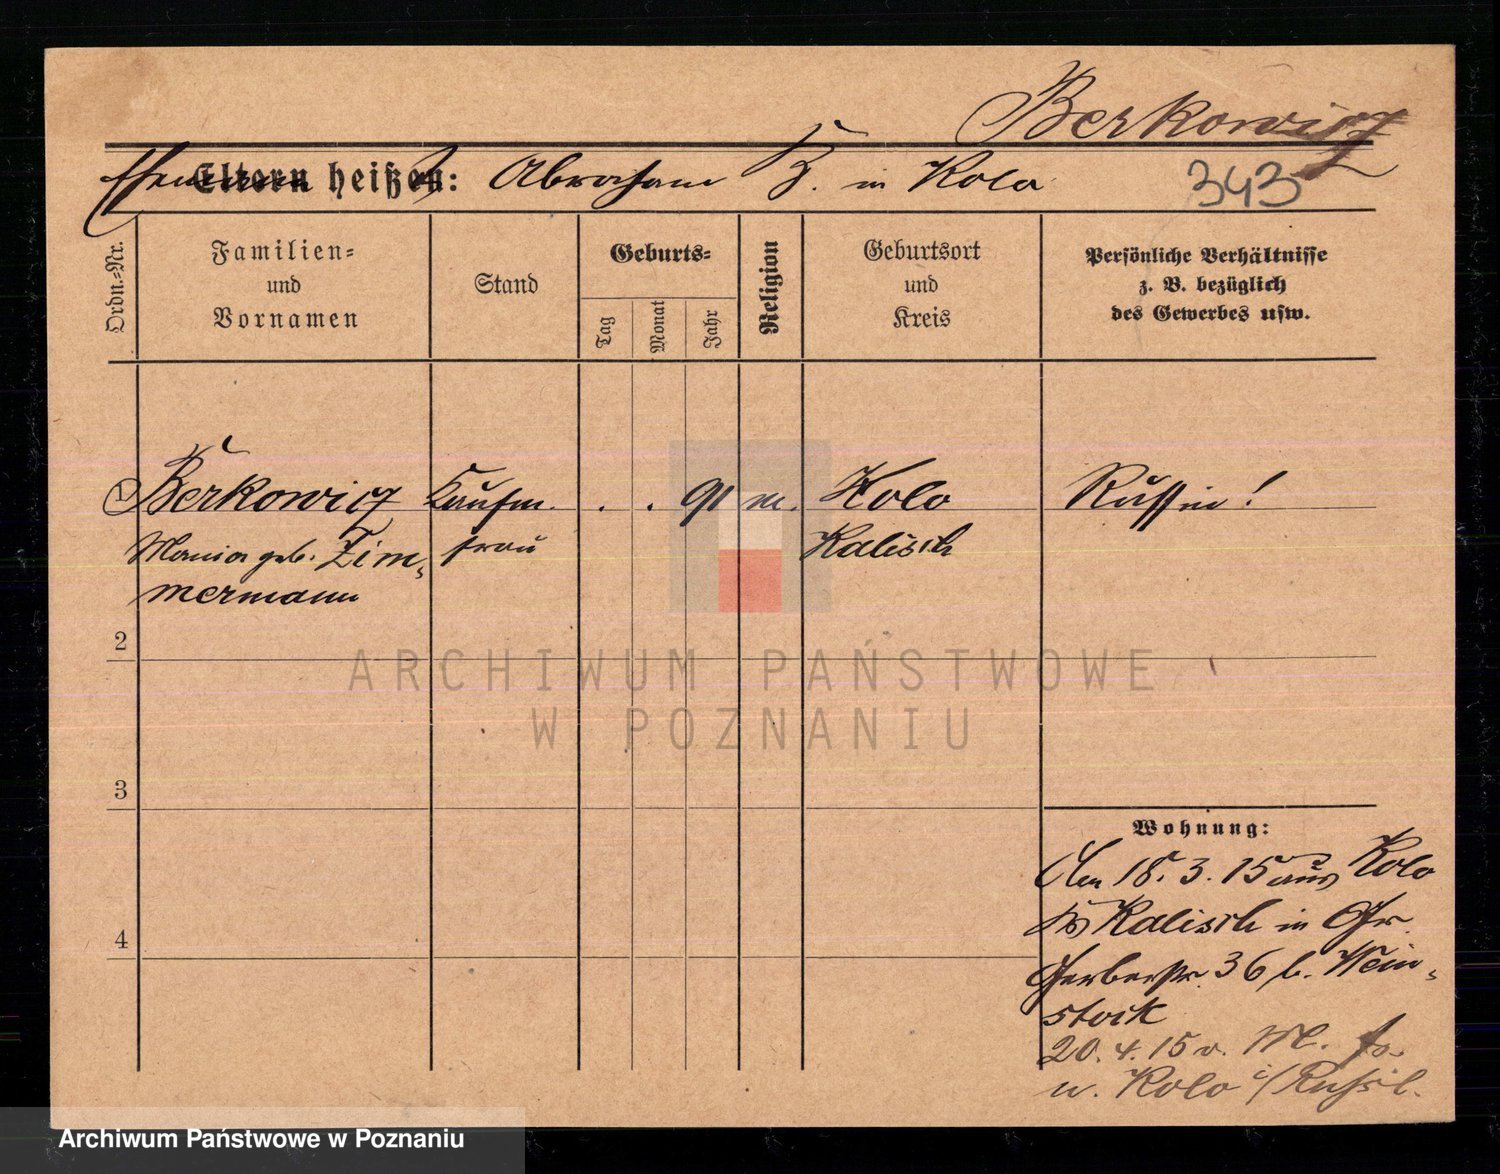 Berkowicz
Ehemann heißt: Abraham B. in Kolo
343
Ordn.=Nr.
Familien=
und
Vornamen
Stand
Geburts=
Tag
Monat
Jahr
Religion
Geburtsort
und
Kreis
Persönliche Verhältnisse
z. B. bezüglich
des Gewerbes usw.
1 Berkowicz Kaufm. . . 91 m. Kolo Russin!
Mania geb. Zim= frau Kalisch
mermann
2
3
4
Wohnung:
Am 18. 3. 15 aus Kolo
Kalisch in Gr.
Gerberstr. 36 b. Wein=
stock
20. 4. 15 v.
n. Kolo i/Rußl.
ARCHIWUM PAŃSTWOWE
W POZNANIU
Archiwum Państwowe w Poznaniu